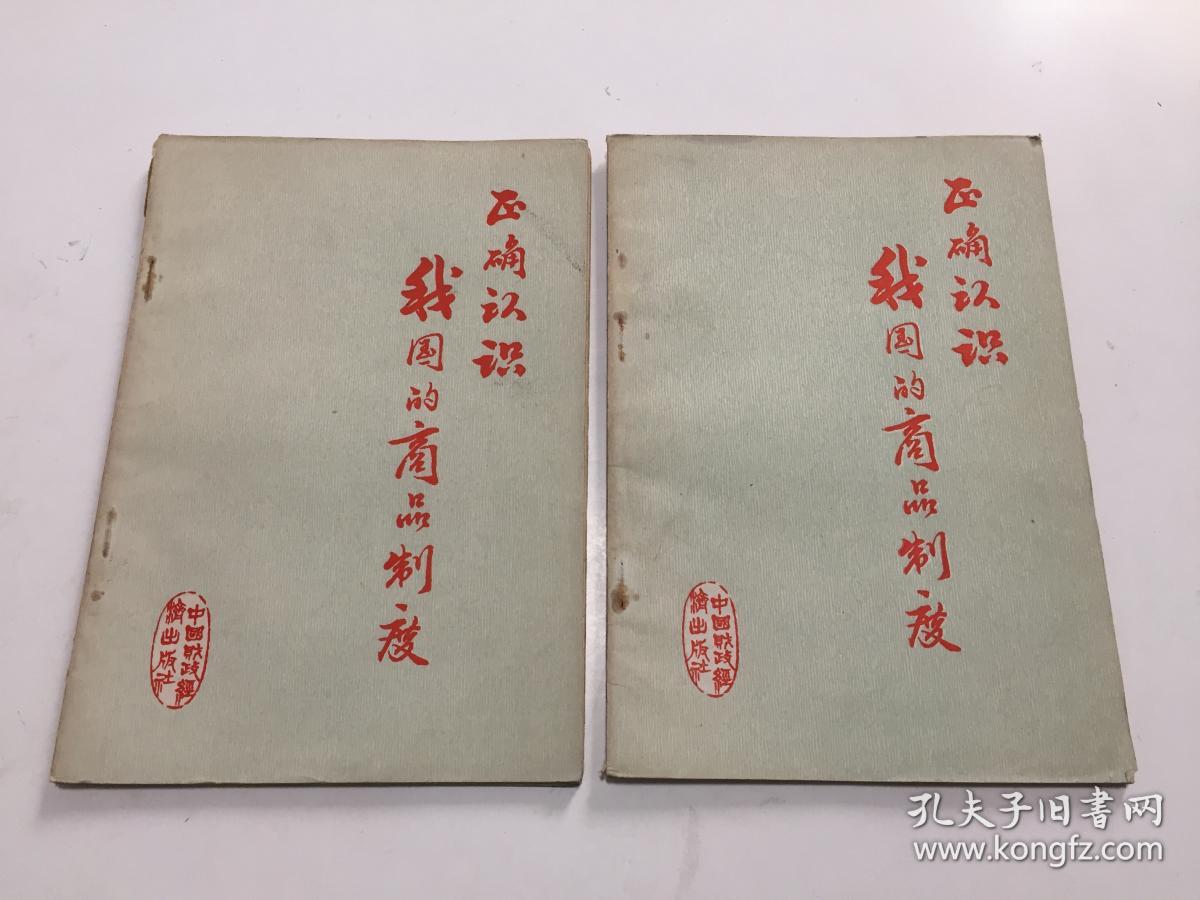 正确认识
我国的商品制度
中國財政經
濟出版社
正确认识
我国的商品制度
中國財政經
濟出版社
孔夫子旧书网
www.kongfz.com